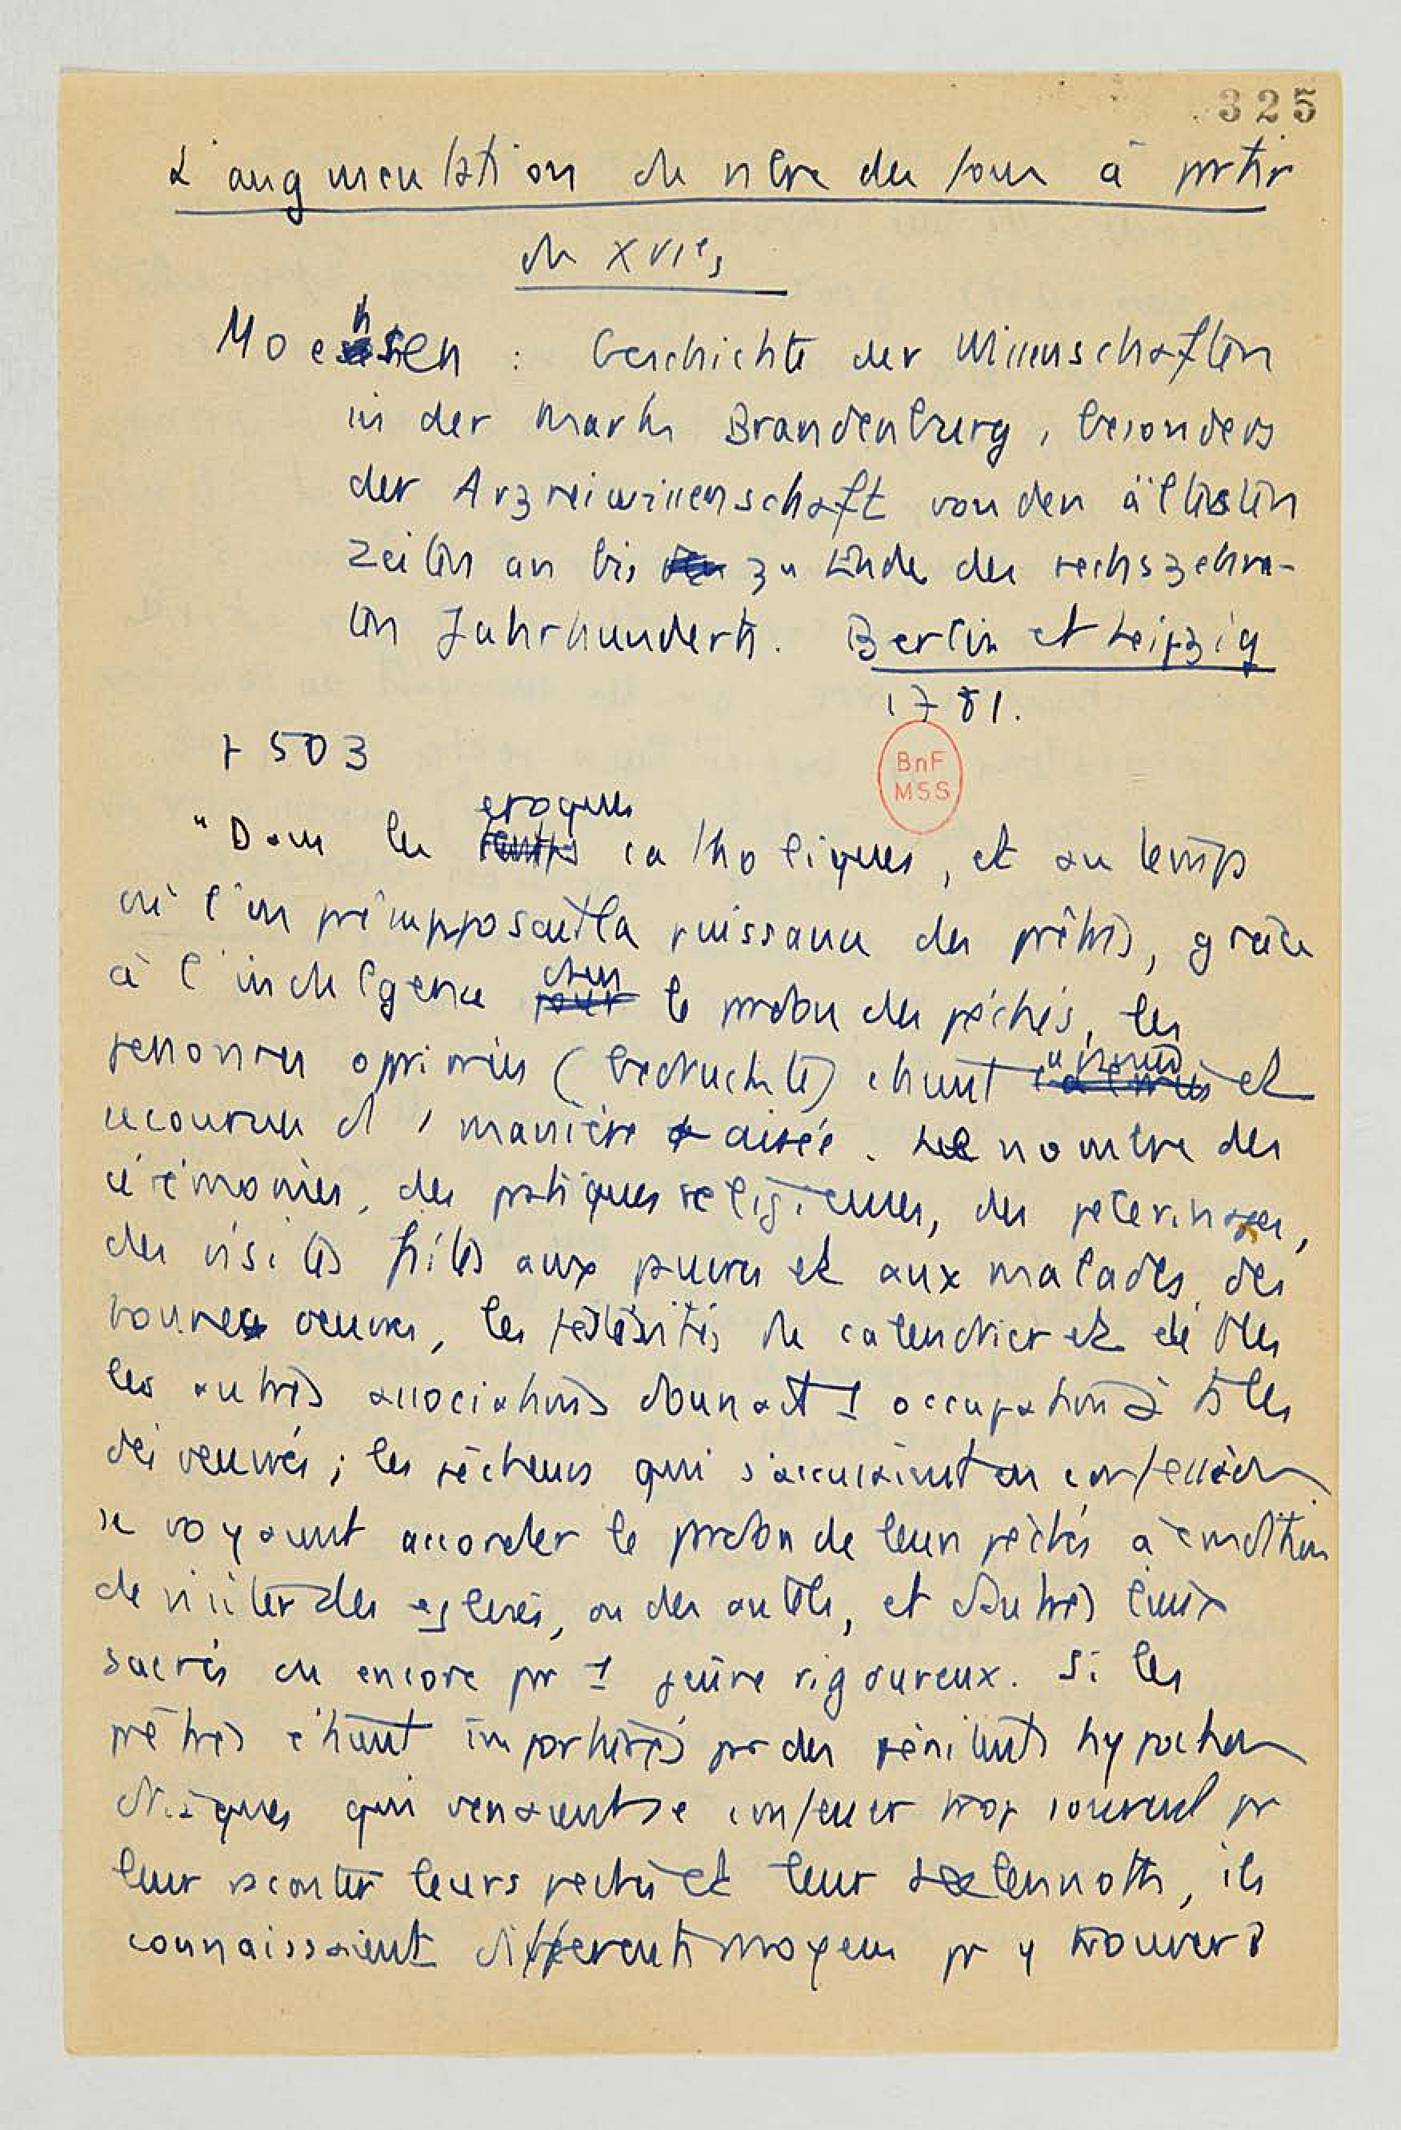 325
L'augmentation du nbre des fous à partir
du XVIe s
Moehsen : Geschichte der Wissenschaften
in der Mark Brandenburg, besonders
der Arzneiwissenschaft von den ältesten
Zeiten an bis zu Ende des sechszehn-
ten Jahrhunderts. Berlin et Leipzig
1781.
p 503
BnF
MSS
"Dans les époques catholiques, et au temps
où l'on présupposait la puissance des prêtres, grâce
à l'indulgence dans le pardon des péchés, les
personnes oprimées (bedruckte) étaient et
secourues d' manière aisée. Le nombre des
cérémonies, des pratiques religieuses, des pelerinages,
des visites faites aux pauvres et aux malades, des
bonnes oeuvres, les festivités du calendrier et de ttes
les autres associations donnait 1 occupation à ttes
des oeuvres ; les pécheurs qui s'accusaient en confession
se voyaient accorder le pardon de leurs péchés à condition
de visiter des eglises, ou des autels, et d'autres lieux
sacrés ou encore pr 1 jeûne rigoureux. Si les
prêtres étaient importunés par des pénitents hypochon
driaques qui venaient se confesser trop souvent pr
leur raconter leurs pechés et leur, ils
connaissaient differents moyens pr y trouver